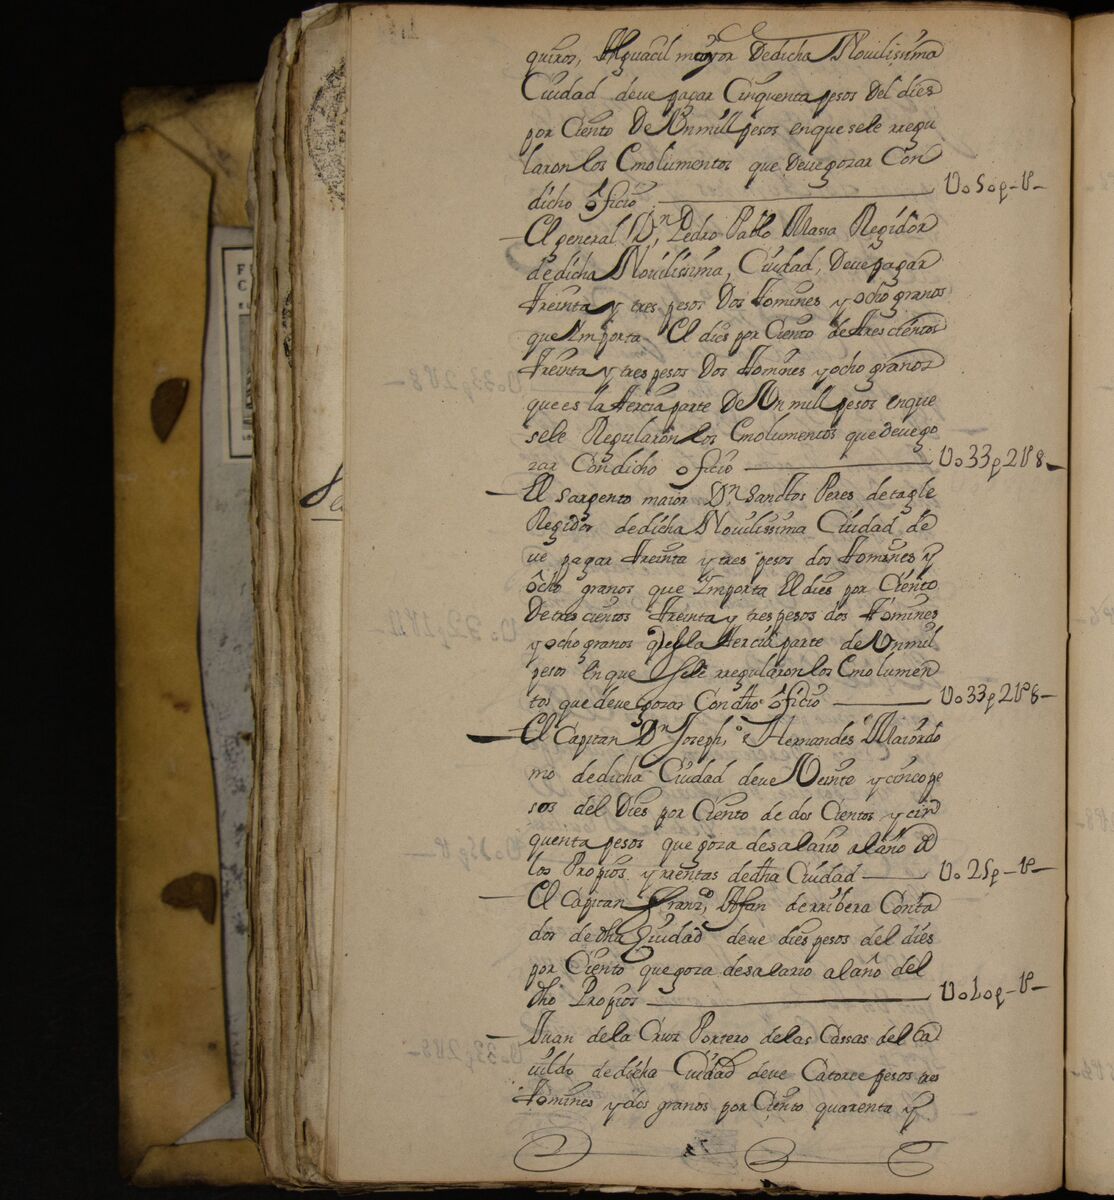 quiros, Alguacil mayor Dedicha Nouilissima
Ciudad deue pagar Cinquenta pesos Del dies
por Ciento De Vn mill pesos enque sele rregu
laron los Emolumentos que Deue gozar Con
dicho officio U o50p-U-
El general Dn, Pedro Pablo Massa Regidor
dedicha Nouilissima, Ciudad, Deue pagar
treinta y tres pesos Dos tomines y ocho granos
que Importa El dies por Ciento de trescientos
treinta y tres pesos Dos tomines y ocho granos
que es la terciaparte De Vn mill pesos enque
sele Regularon los Emolumentos que deue go
zar Con dicho officio U o33p2U8-
El Sargento maior Dn Sanctos Peres de tagle
Regidor dedicha Nouilissima Ciudad de
ue pagar treinta y tres pesos dos tomines y
ôcho granos que Importa El dies por Ciento
De tres cientos treinta y tres pesos dos tomines
y ocho granos q es la tercia parte de Vn mil
pesos En que sele rregularon los Emolumen
tos que deue gozar Con dho officio U o33p2U8-
El Capitan Dn Joseph, Hernandes Maiordo
mo dedicha Ciudad deue Veinte y cinco pe
sos del Dies por Ciento de dos Cientos y cin
quenta pesos que goza desalario alaño D
los Propios, y rrentas dedha Ciudad U o25p-U-
El Capitan Franzco, Afan derribera Conta
dor de dha Ziudad deue dies pesos del dies
por Ciento que goza desalario alaño del
dho Propios U o10p-U-
Juan dela Cruz Portero delas Cassas del Ca
uildo dedicha Ciudad deue Catorce pesos tres
tomines y dos granos por Ciento quarenta y